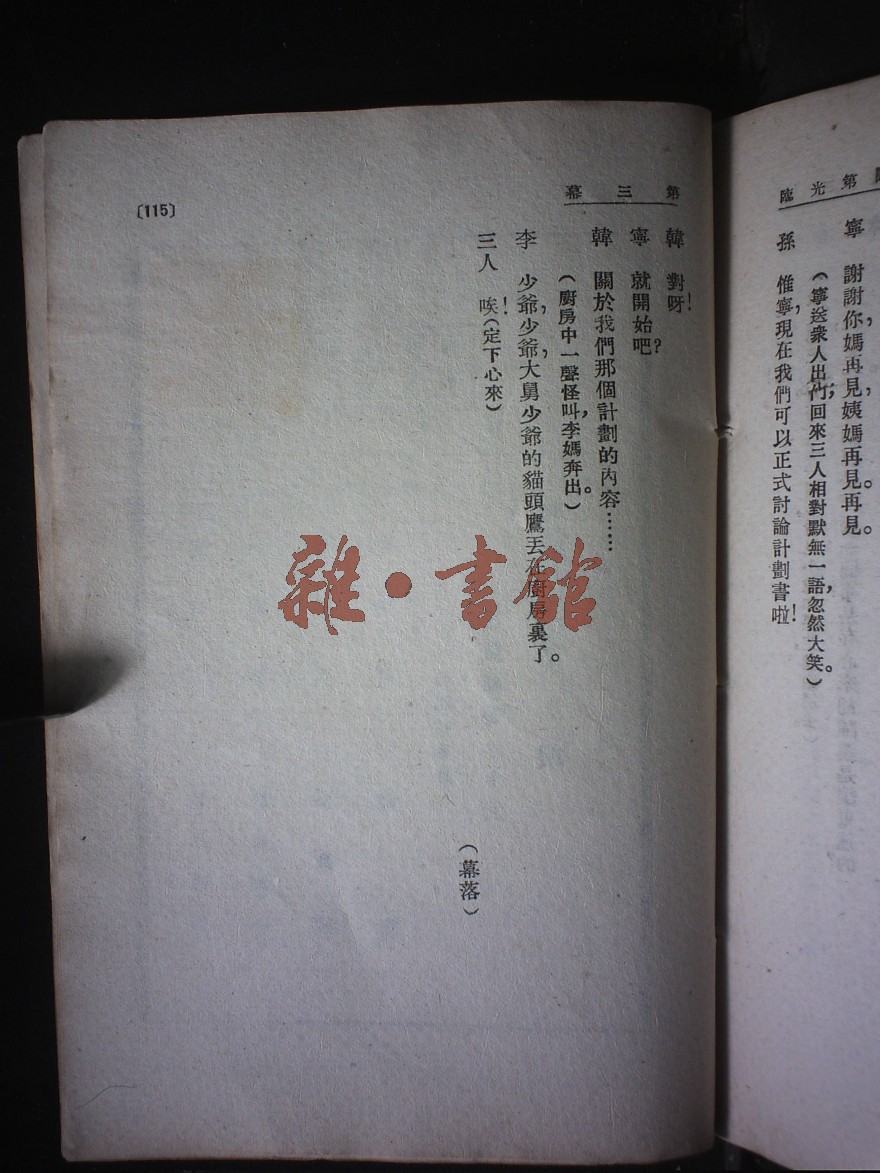 光臨
寧 謝謝你,媽再見,姨媽再見。再見。
(寧送衆人出門;回來三人相對默無一語,忽然大笑。)
孫 惟寧,現在我們可以正式討論計劃書啦!
第三幕
韓 對呀!
寧 就開始吧?
韓 關於我們那個計劃的內容……
(廚房中一聲怪叫,李媽奔出。)
李 少爺,少爺,大舅少爺的貓頭鷹丟在廚房裏了。
三人 唉!(定下心來)
(幕落)
〔115〕
雜·書館